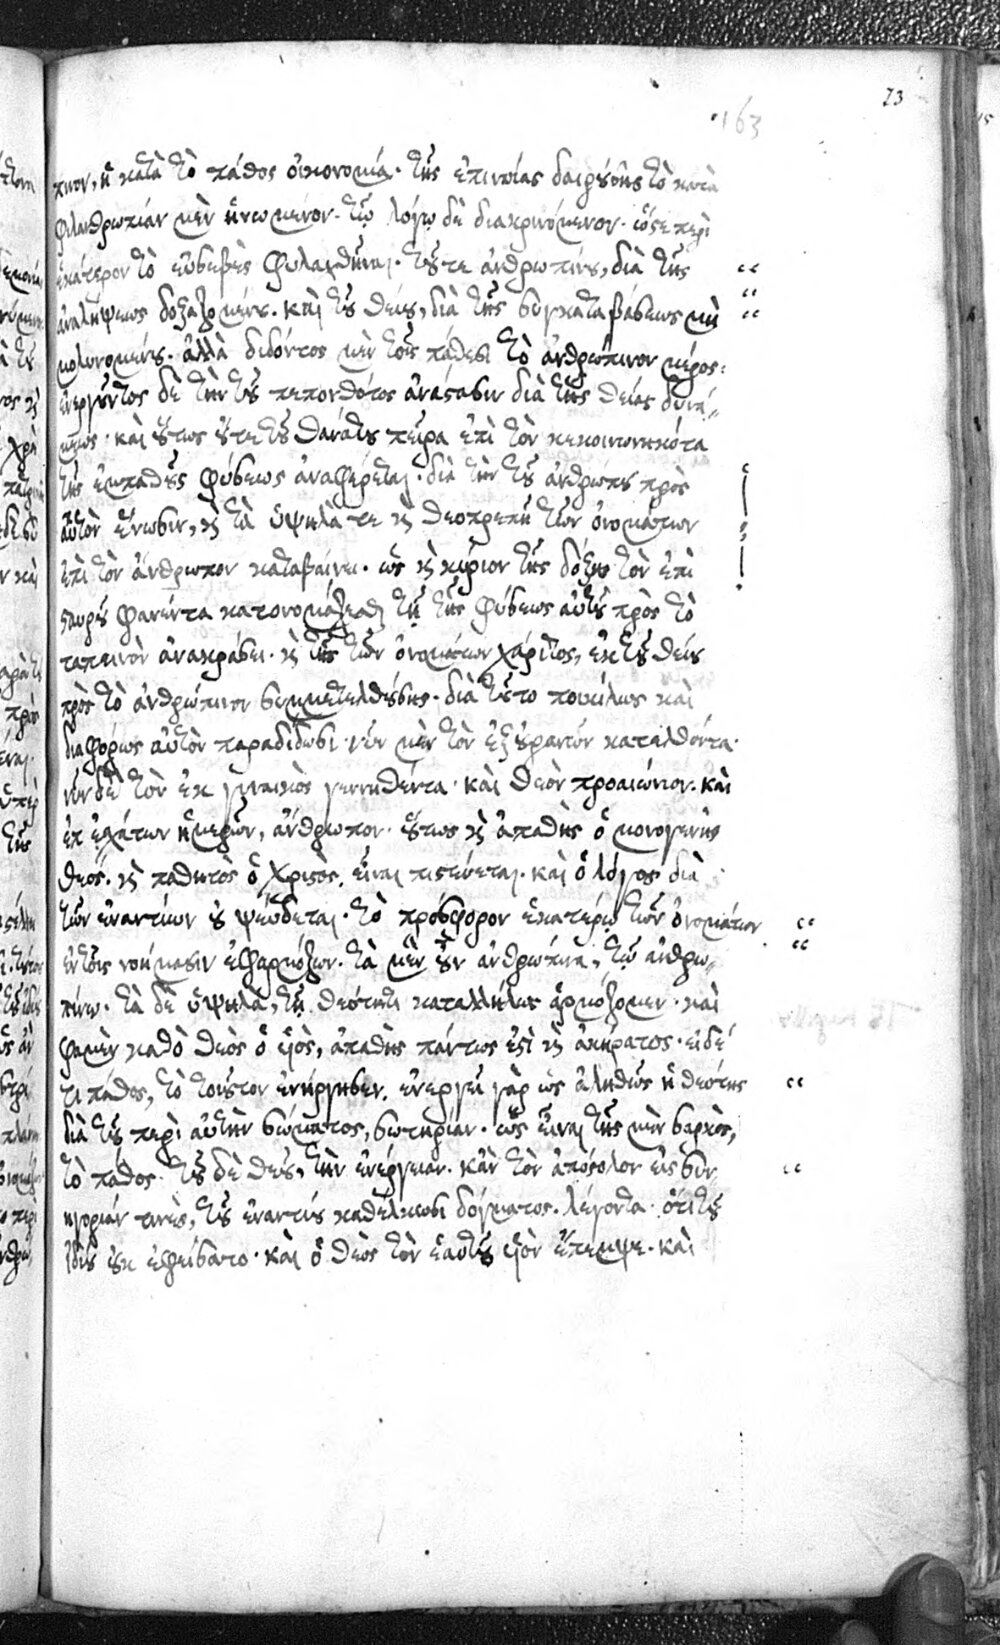 23
163
πινον, ἢ κατὰ τὸ πάθος οἰκονομία· τῆς ἐπινοίας διαιρούσης τὸ κατὰ
φιλανθρωπίαν μὲν ἡνωμένον· τῷ λόγῳ δὲ διακρινόμενον· ὥστε περὶ
ἑκάτερον τὸ εὐσεβὲς φυλαχθῆναι· τοῦ τε ἀνθρωπίνου, διὰ τῆς
ἀναλήψεως δοξαζομένου· καὶ τοῦ θείου, διὰ τῆς συγκαταβάσεως μὴ
μολυνομένου· ἀλλὰ διδόντος μὲν τοῖς πάθεσι τὸ ἀνθρώπινον μέρος·
ἐνεργοῦντος δὲ τὴν τοῦ πεπονθότος ἀνάστασιν διὰ τῆς θείας δυνά-
μεως· καὶ οὕτως οὔτε τοῦ θανάτου πεῖρα ἐπὶ τὸν κεκοινωνηκότα
τῆς ἐμπαθοῦς φύσεως ἀναφέρεται· διὰ τὴν τοῦ ἀνθρώπου πρὸς
αὐτὸν ἕνωσιν, καὶ τὰ ὑψηλά τε καὶ θεοπρεπῆ τῶν ὀνομάτων
ἐπὶ τὸν ἄνθρωπον καταβαίνει· ὡς καὶ κύριον τῆς δόξης τὸν ἐπὶ
σταυροῦ φανέντα κατονομάζεσθαι τῇ τῆς φύσεως αὐτοῦ πρὸς τὸ
ταπεινὸν ἀνακράσει· καὶ τῆς τῶν ὀνομάτων χάριτος, ἐκ τοῦ θείου
πρὸς τὸ ἀνθρώπινον συμμετελθούσης· διὰ τοῦτο ποικίλως καὶ
διαφόρως αὐτὸν παραδίδωσι· νῦν μὲν τὸν ἐξ οὐρανῶν κατελθόντα·
νῦν δὲ τὸν ἐκ γυναικὸς γεννηθέντα· καὶ θεὸν προαιώνιον· καὶ
ἐπ ἐσχάτων ἡμερῶν, ἄνθρωπον· οὕτως καὶ ἀπαθὴς ὁ μονογενὴς
θεός· καὶ παθητὸς ὁ χριστὸς, εἶναι πιστεύεται· καὶ ὁ λόγος διὰ
τῶν ἐναντίων οὐ ψεύδεται· τὸ πρόσφορον ἑκατέρῳ τῶν ὀνομάτων
ἐν τοῖς νοήμασιν ἐφαρμόζων· τὰ μὲν οὖν ἀνθρώπινα, τῷ ἀνθρω-
πίνῳ· τὰ δὲ ὑψηλὰ, τῇ θεότητι καταλλήλως ἁρμόζομεν· καὶ
φαμὲν καθὸ θεὸς ὁ υἱὸς, ἀπαθὴς πάντως ἐστὶ καὶ ἀκήρατος· εἰ δέ
τι πάθος, τὸ τοιοῦτον ἐνήργησεν· ἐνεργεῖ γὰρ ὡς ἀληθῶς ἡ θεότης
διὰ τοῦ περὶ αὐτὴν σώματος, σωτηρίαν· ὡς εἶναι τῆς μὲν σαρκὸς,
τὸ πάθος· τοῦ δὲ θεοῦ, τὴν ἐνέργειαν· κἂν τὸν ἀπόστολον εἰς συν-
ηγορίαν τινὲς, τοῦ ἐναντίου καθέλκωσι δόγματος· λέγοντα· ὅτι τοῦ
ἰδίου οὐκ ἐφείσατο· καὶ ὁ θεὸς τὸν ἑαυτοῦ υἱὸν ἔπεμψε· καὶ